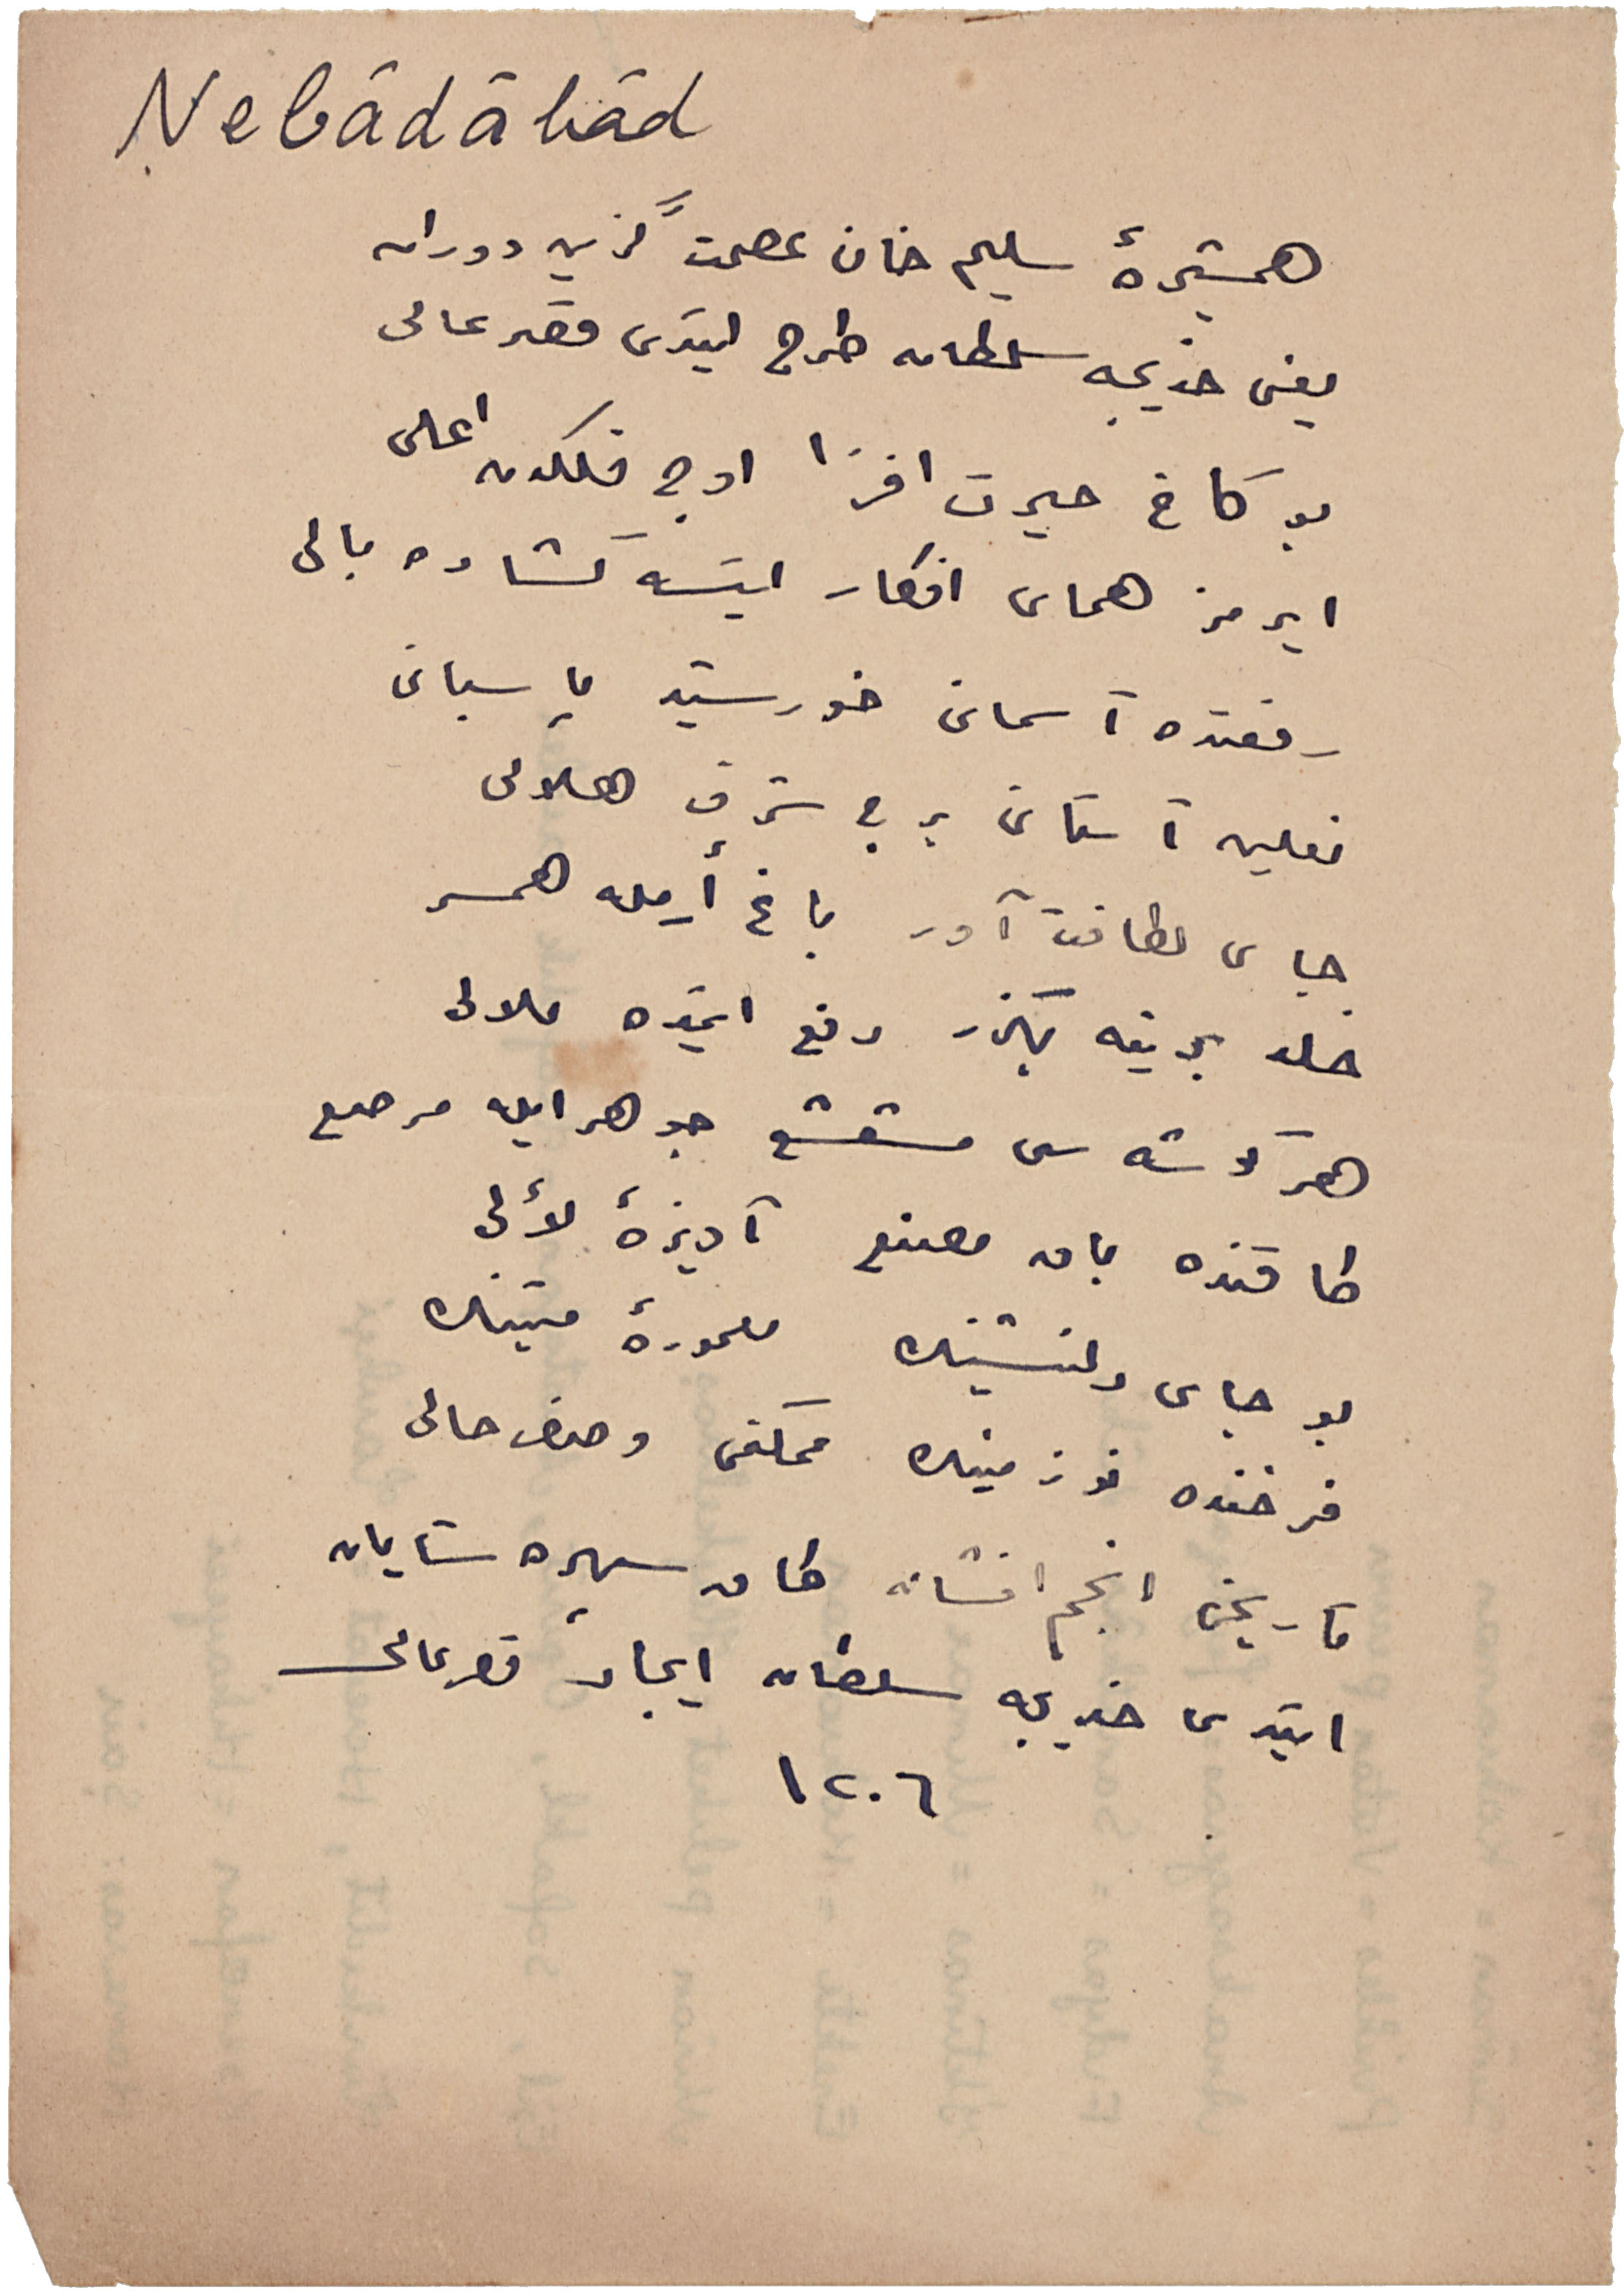 Nebâdâbâd
همشیرۀ سلیم خان عصمت گزین دوران
یعنی خدیجه سلطان طرح ایتدی قصر عالی
بو كاخ حیرت افزا اوج فلكدن اعلی
ایرمز همای افكار ایتسه گشاده بالی
رفعتده آسمانی خورشید پاسبانی
نعلین آستانی برج شرف هلالی
جای لطافت آور باغ أرمله همسر
خلد برینه بكزر دفع ایتمده ملالی
هر گوشه سی مشعشع جوهر ایله مرصع
طاقنده بام مصنع آویزۀ لألی
بو جای دلنشینك معمورۀ متینك
فرخنده نو زمینك ممكنمی وصف حالی
تاریخی انجم افشان طاق سپهره شایان
ایتدی خدیجه سلطان ایجاد قصر عالی
١٢٠٦